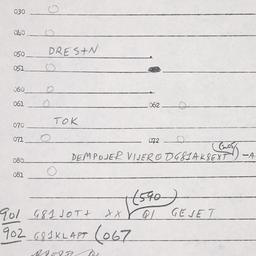 030
040
050 DRES+N
051
060
061 062
070 TOK
071 072
080 DEMPOJER VIJERO DG81AK8EXT -A
081
(590)
901 G81JOT+ XX QI GEJET
902 G81KLAPT (067